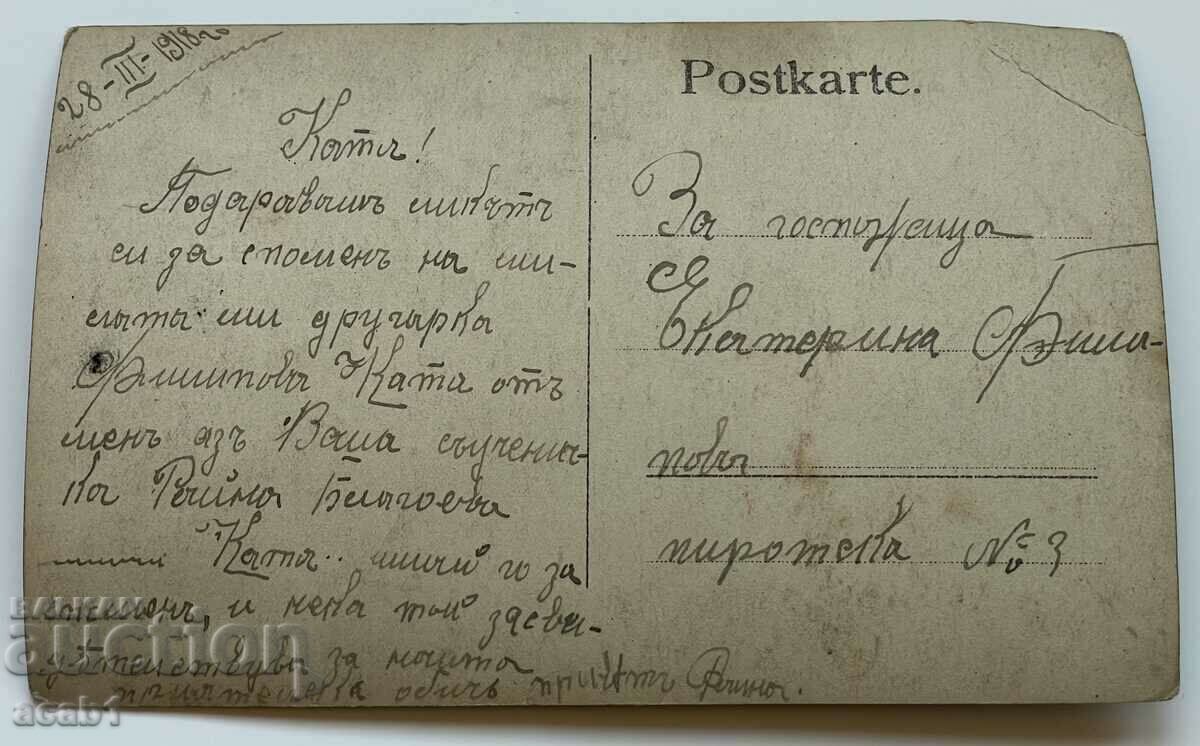 28-III-1918 г
Ката!
Подаравамъ ликътъ
си за споменъ на ми-
лата ми другарка
Филипова Ката отъ
менъ азъ Ваша съучени-
ка Райна Благоева
Ката.. имай го за
споменъ, и нека той засви-
дѣтелствува за нашта
приятелска обичъ Райна.
Postkarte.
За госпожица
Екатерина Фили-
пова
пиротска № 3
BALKAN
auction
acab1